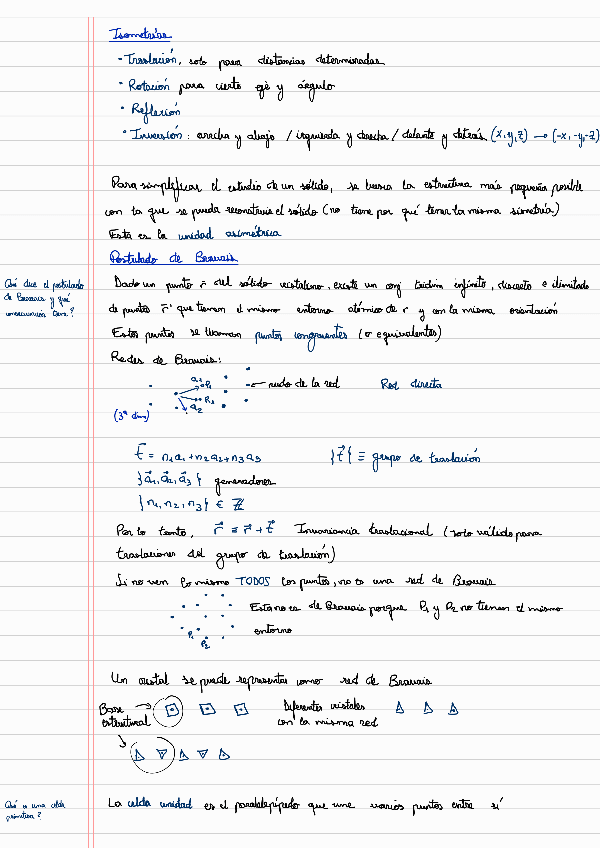 Isometrías
- Traslación, solo para distancias determinadas
· Rotación para cierto eje y ángulo
· Reflexión
· Inversión: arriba y abajo / izquierda y derecha / delante y detrás (x,y,z) → (-x,-y,-z)
Para simplificar el estudio de un sólido, se busca la estructura más pequeña posible
con la que se pueda reconstruir el sólido (no tiene por qué tener la misma simetría)
Esta es la unidad asimétrica
Postulado de Bravais
Qué dice el postulado
de Bravais y qué
consecuencias tiene?
Dado un punto r⃗ del sólido cristalino, existe un conj tridim infinito, discreto e ilimitado
de puntos r⃗' que tienen el mismo entorno atómico de r y con la misma orientación
Estos puntos se llaman puntos congruentes (o equivalentes)
Redes de Bravais:
a₁ P₁
P₂
a₂
← nudo de la red Red directa
(3ª dim)
t⃗ = n₁a₁+n₂a₂+n₃a₃ {t⃗} ≡ grupo de traslación
{a⃗₁, a⃗₂, a⃗₃} generadores
{n₁, n₂, n₃} ∈ ℤ
Por lo tanto, r⃗ ≡ r⃗ + t⃗ Invariancia traslacional (solo válido para
traslaciones del grupo de traslación)
Si no ven lo mismo TODOS los puntos, no es una red de Bravais
Esta no es de Bravais porque P₁ y P₂ no tienen el mismo
entorno
P₁
P₂
Un cristal se puede representar como red de Bravais
Base →
estructural
Diferentes cristales
con la misma red
Qué es una celda
primitiva?
La celda unidad es el paralelepípedo que une varios puntos entre sí